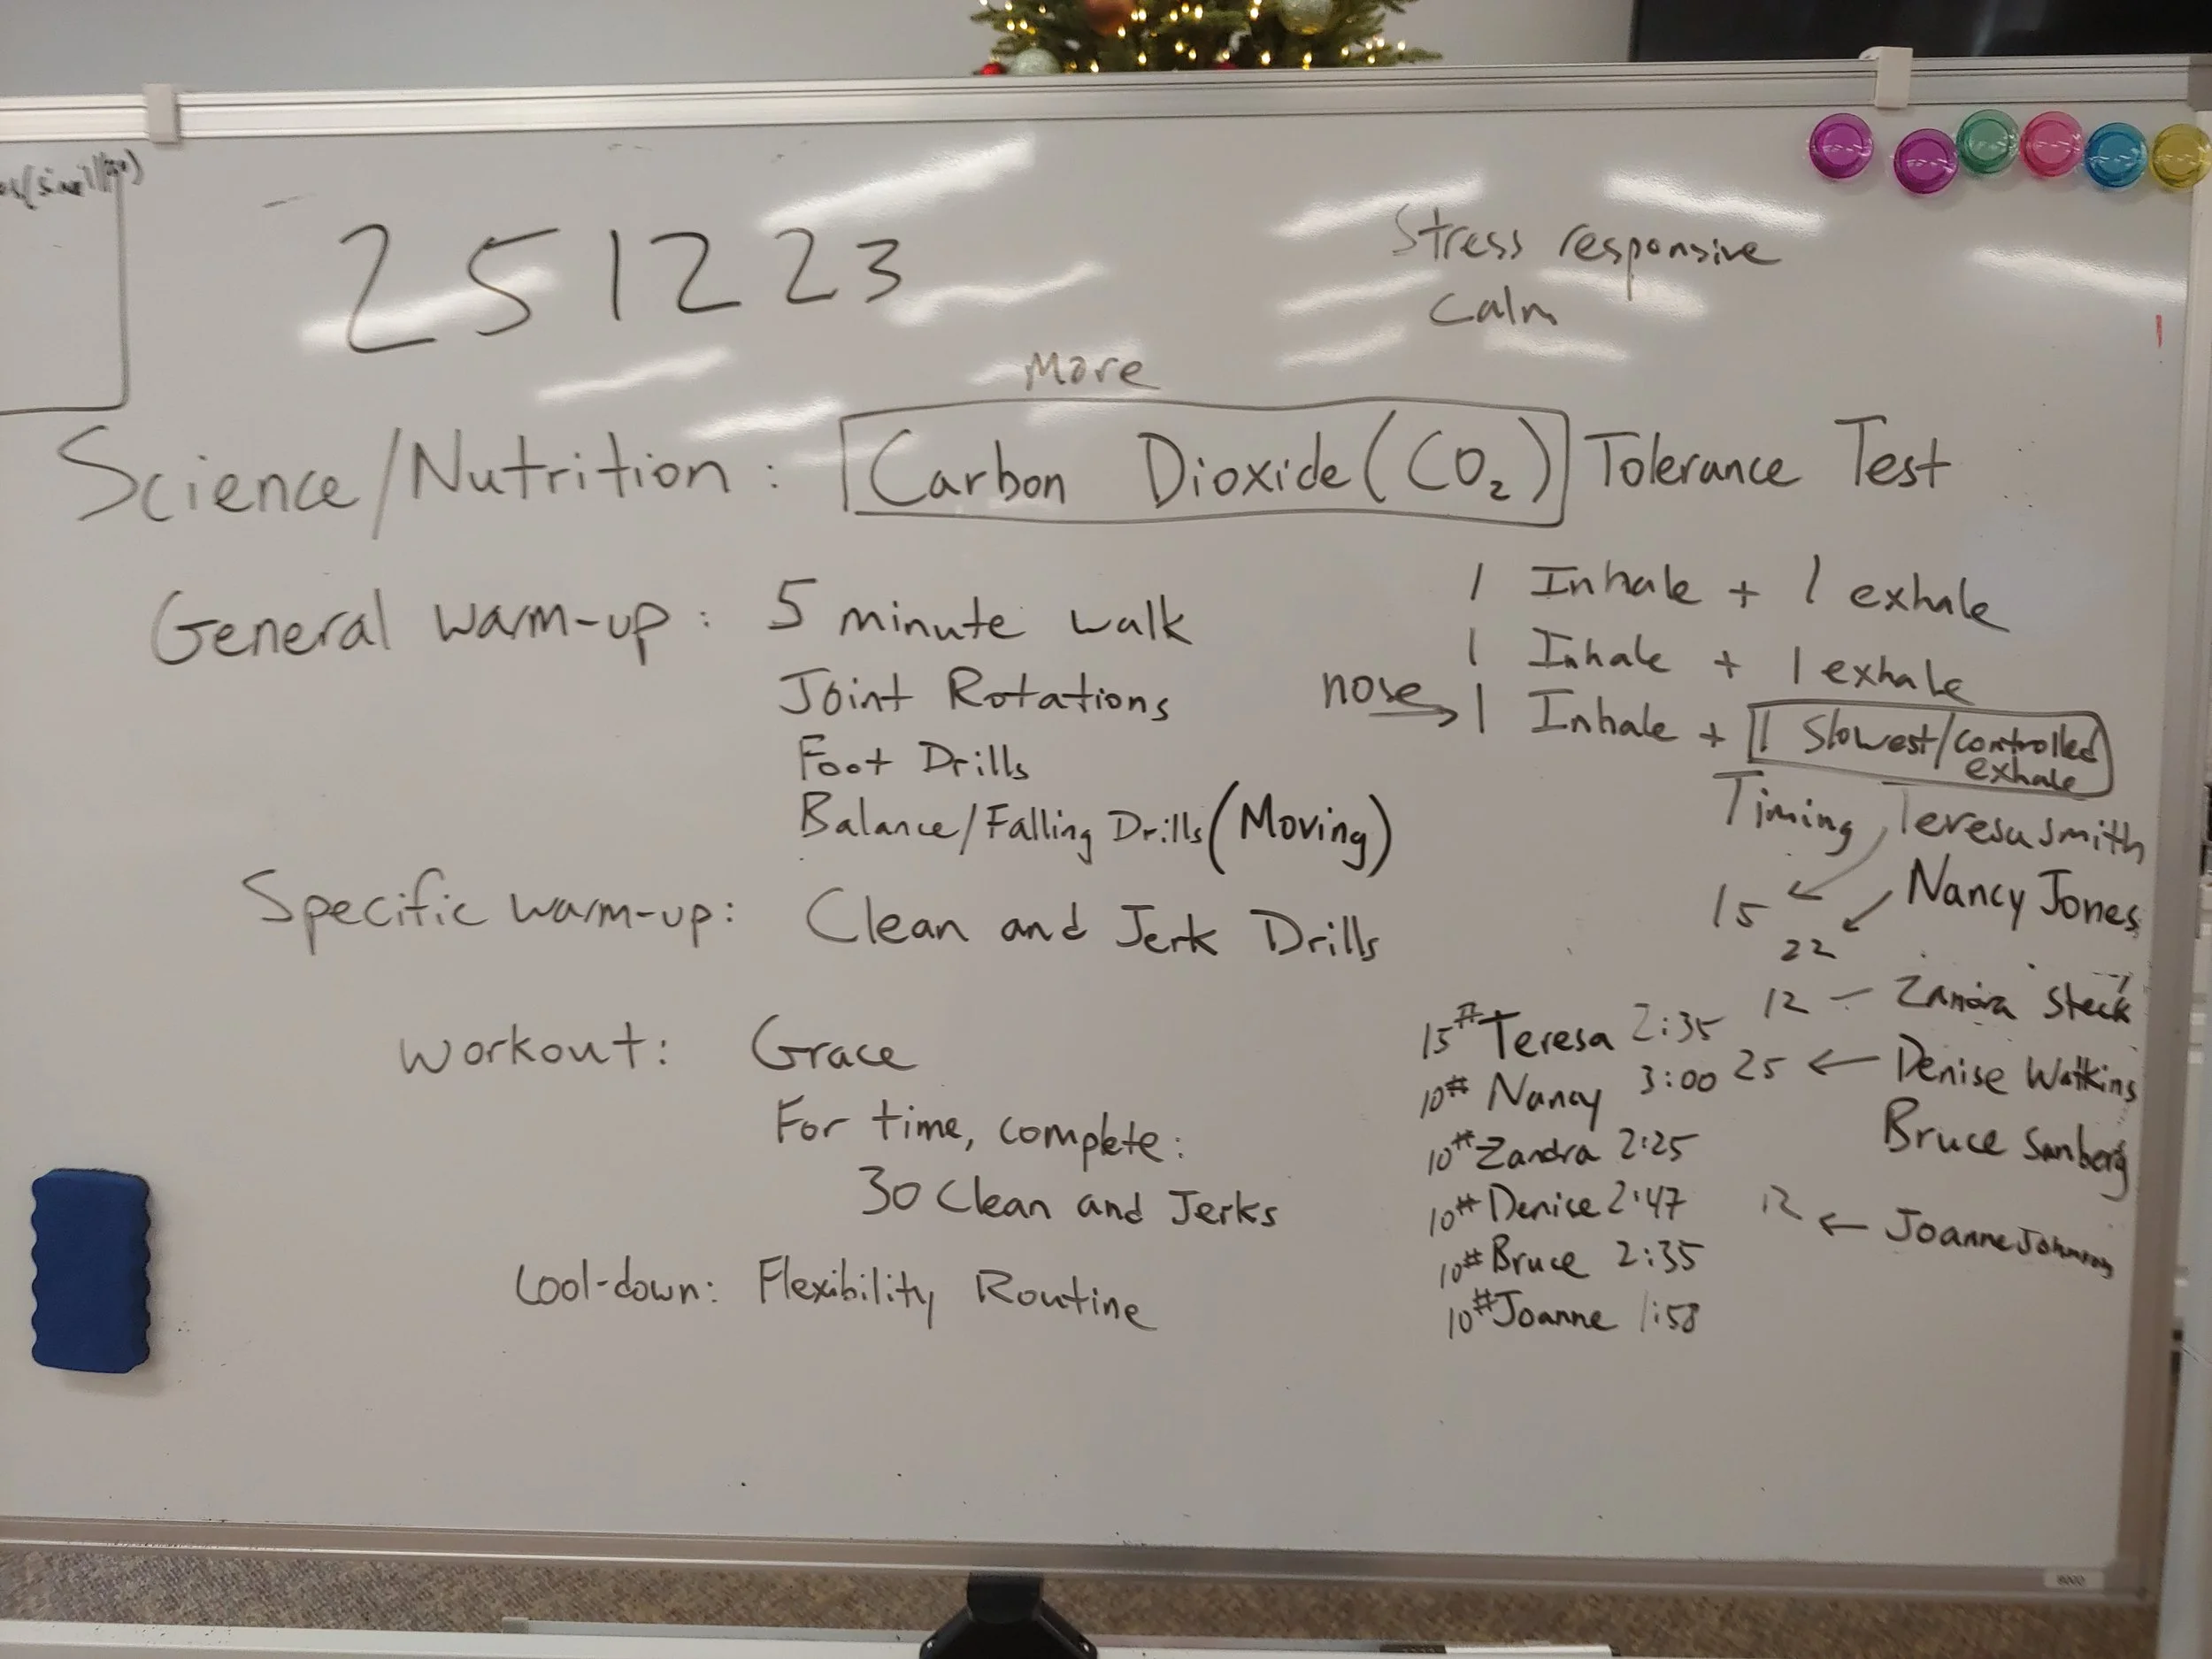 251223
Stress responsive
Calm
More
Science/Nutrition: Carbon Dioxide (CO₂) Tolerance Test
General warm-up: 5 minute walk
Joint Rotations
Foot Drills
Balance/Falling Drills (Moving)
1 Inhale + 1 exhale
1 Inhale + 1 exhale
nose → 1 Inhale + 1 Slowest/controlled
exhale
Timing
Teresa Smith
15
Nancy Jones
22
12 — Zandra Steck
25 ← Denise Watkins
Bruce
12 ← Joanne Johnson
Specific warm-up: Clean and Jerk Drills
Workout: Grace
For time, complete:
30 Clean and Jerks
Cool-down: Flexibility Routine
15# Teresa 2:35
10# Nancy 3:00
10# Zandra 2:25
10# Denise 2:47
10# Bruce 2:35
10# Joanne 1:58